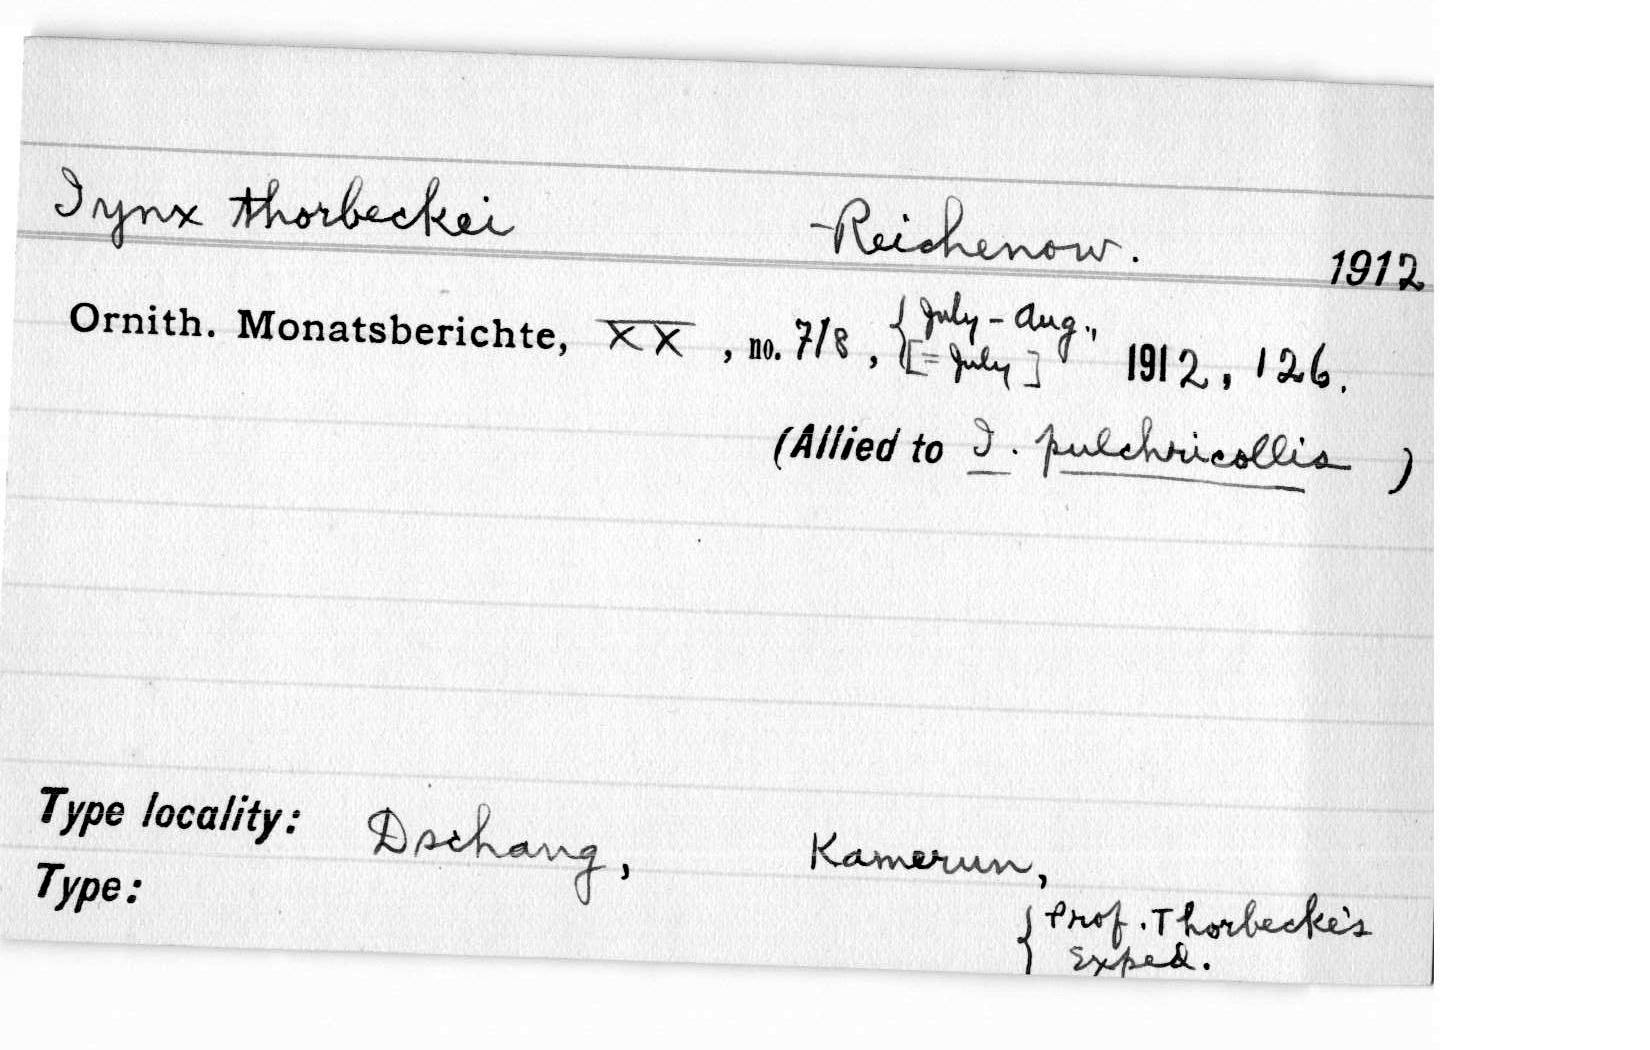 Iynx thorbeckei Reichenow. 1912
Ornith. Monatsberichte, XX, no. 7/8, {July-Aug., [= July] 1912, 126.
(Allied to I. pulchricollis)
Type locality: Dschang, Kamerun,
Type: {Prof. Thorbecke's
Exped.